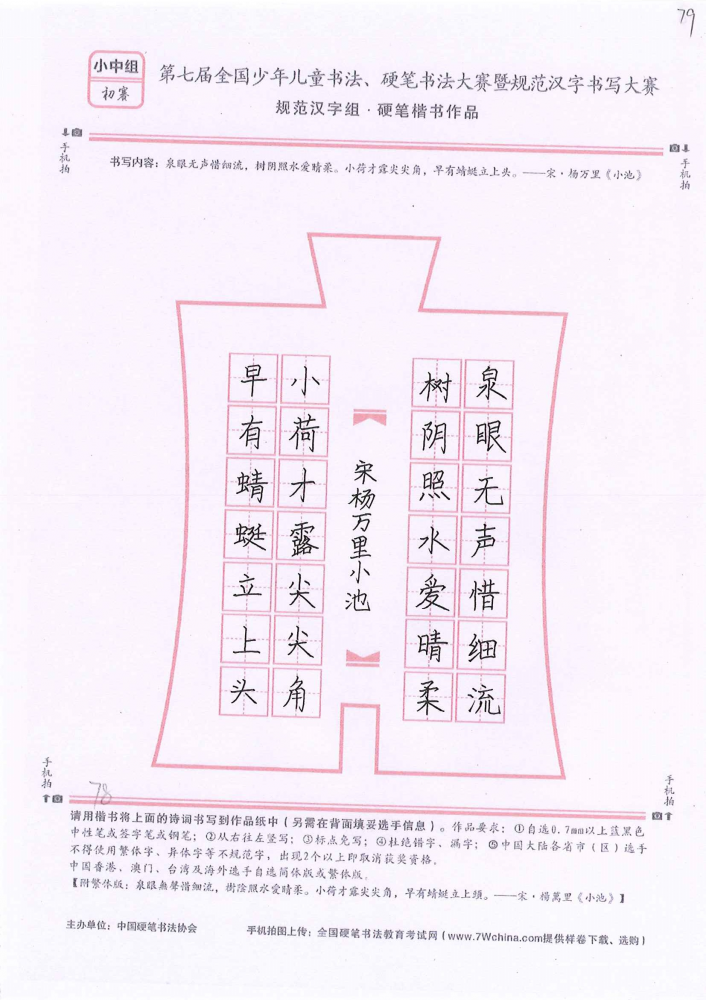 79
小中组
初赛
第七届全国少年儿童书法、硬笔书法大赛暨规范汉字书写大赛
规范汉字组·硬笔楷书作品
手机拍
手机拍
书写内容：泉眼无声惜细流，树阴照水爱晴柔。小荷才露尖尖角，早有蜻蜓立上头。——宋·杨万里《小池》
泉眼无声惜细流
树阴照水爱晴柔
宋杨万里小池
小荷才露尖尖角
早有蜻蜓立上头
手机拍
手机拍
78
请用楷书将上面的诗词书写到作品纸中（另需在背面填妥选手信息）。作品要求：①自选0.7mm以上蓝黑色
中性笔或签字笔或钢笔；②从右往左竖写；③标点免写；④杜绝错字、漏字；⑤中国大陆各省市（区）选手
不得使用繁体字、异体字等不规范字，出现2个以上即取消获奖资格。
中国香港、澳门、台湾及海外选手自选简体版或繁体版。
【附繁体版：泉眼無聲惜細流，樹陰照水愛晴柔。小荷才露尖尖角，早有蜻蜓立上頭。——宋·楊萬里《小池》】
主办单位：中国硬笔书法协会
手机拍图上传：全国硬笔书法教育考试网（www.7Wchina.com提供样卷下载、选购）